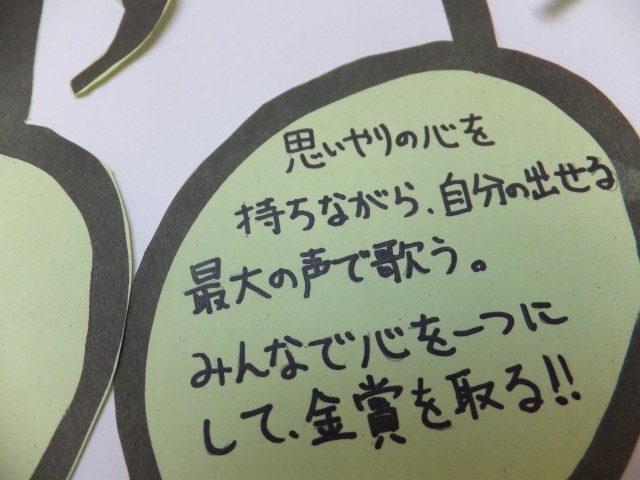 思いやりの心を
持ちながら、自分の出せる
最大の声で歌う。
みんなで心を一つに
して、金賞を取る!!